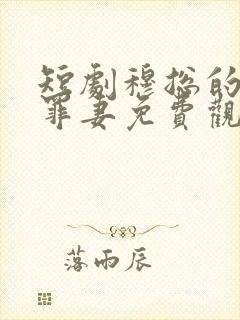 短劇穆總的
罪妻免費觀
落雨辰